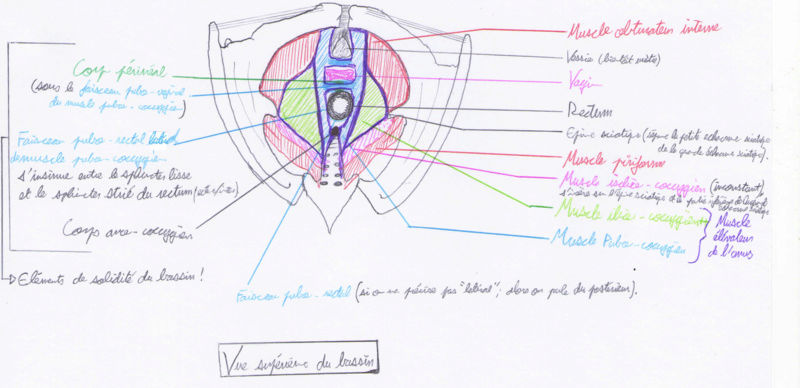 Corps périnéal
(sous le faisceau pubo-vaginal
du muscle pubo-coccygien)
Faisceau pubo-rectal latéral
du muscle pubo-coccygien
s'insinue entre le sphincter lisse
et le sphincter strié du rectum
Corps ano-coccygien
Eléments de solidité du bassin !
Muscle obturateur interne
Vessie
Vagin
Rectum
Epine sciatique (sépare la petite échancrure sciatique
de la grande échancrure sciatique).
Muscle piriforme
Muscle ischio-coccygien (inconstant)
s'insère sur l'épine sciatique et la partie inférieure de
Muscle ilio-coccygien
Muscle Pubo-coccygien
Muscle
élévateur
de l'anus
Faisceau pubo-rectal (si on ne précise pas "latéral", alors on parle du postérieur).
Vue supérieure du bassin